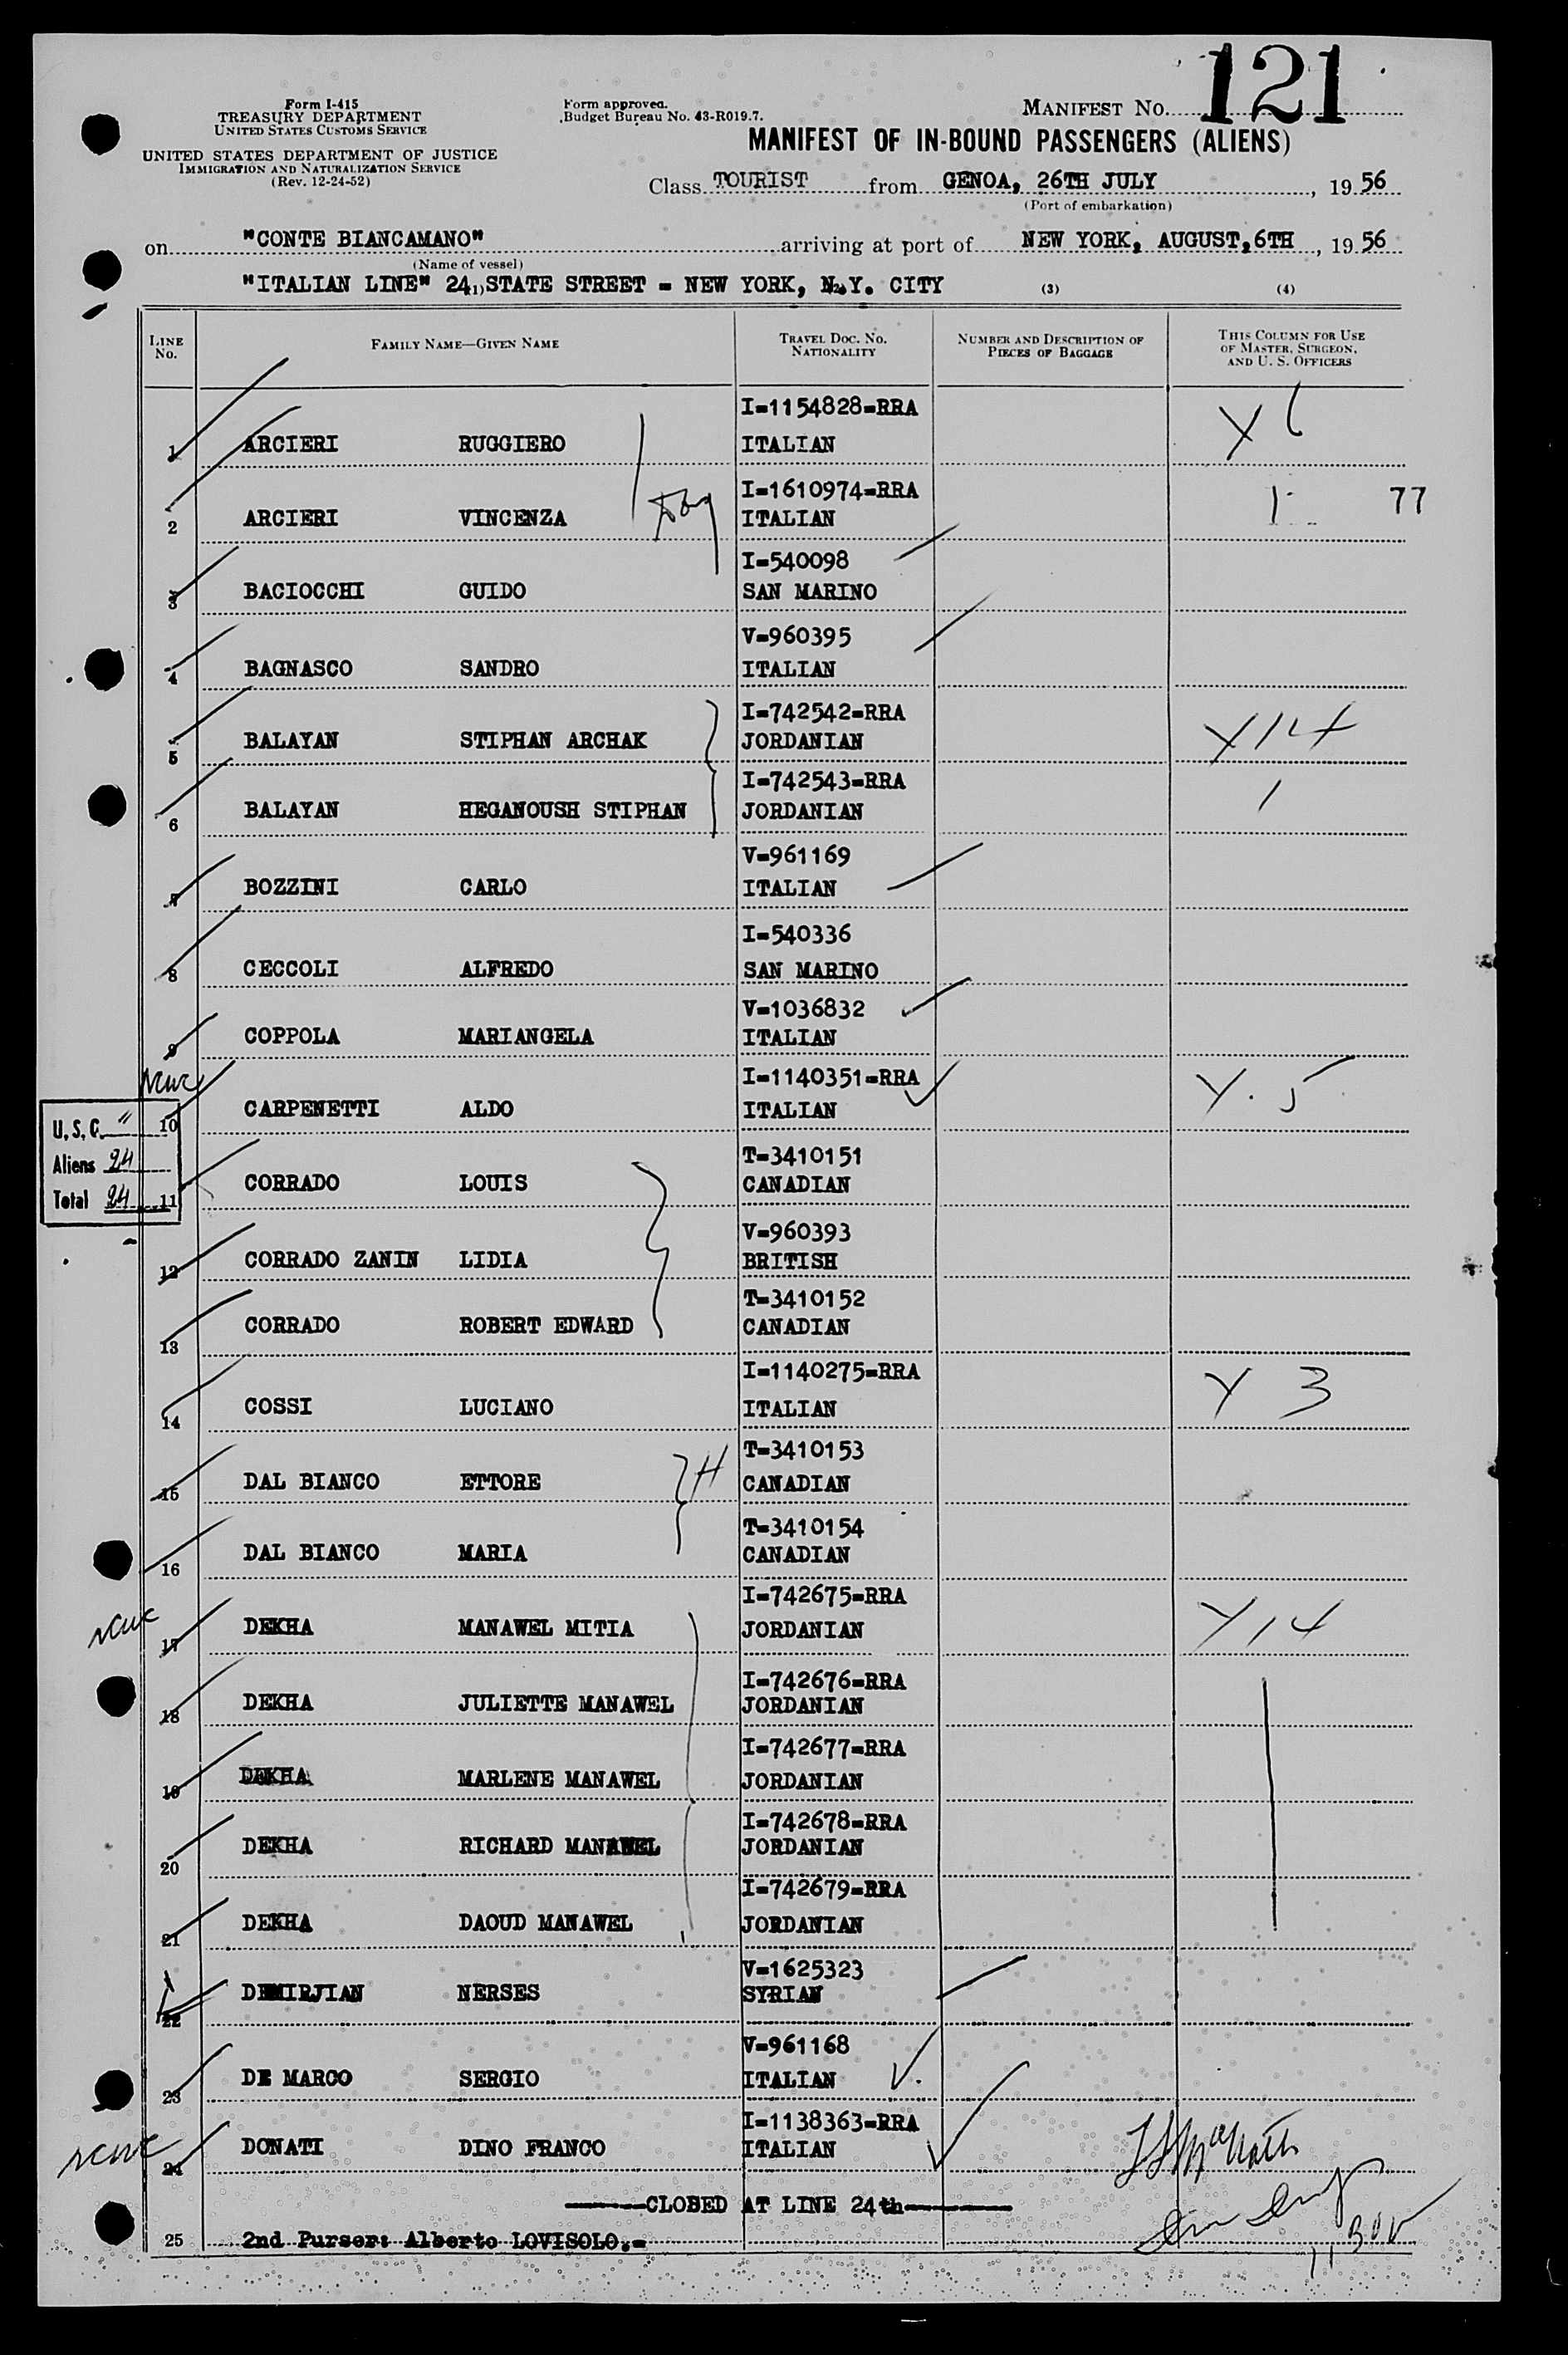 121
Form I-415
TREASURY DEPARTMENT
UNITED STATES CUSTOMS SERVICE
UNITED STATES DEPARTMENT OF JUSTICE
IMMIGRATION AND NATURALIZATION SERVICE
(Rev. 12-24-52)
Form approved.
Budget Bureau No. 43-R019.7.
MANIFEST NO.
MANIFEST OF IN-BOUND PASSENGERS (ALIENS)
Class TOURIST from GENOA, 26TH JULY, 19 56
(Port of embarkation)
on "CONTE BIANCAMANO" arriving at port of NEW YORK, AUGUST, 6TH, 19 56
(Name of vessel)
"ITALIAN LINE" 24, STATE STREET = NEW YORK, N.Y. CITY
(1) (2) (3) (4)
LINE No. FAMILY NAME—GIVEN NAME TRAVEL DOC. NO. NATIONALITY NUMBER AND DESCRIPTION OF PIECES OF BAGGAGE THIS COLUMN FOR USE OF MASTER, SURGEON, AND U. S. OFFICERS
I=1154828=RRA
1 ARCIERI RUGGIERO ITALIAN Y 6
I=1610974=RRA 77
2 ARCIERI VINCENZA ITALIAN
I=540098
3 BACIOCCHI GUIDO SAN MARINO
V=960395
4 BAGNASCO SANDRO ITALIAN
I=742542=RRA
5 BALAYAN STIPHAN ARCHAK JORDANIAN Y 14
I=742543=RRA
6 BALAYAN HEGANOUSH STIPHAN JORDANIAN
V=961169
7 BOZZINI CARLO ITALIAN
I=540336
8 CECCOLI ALFREDO SAN MARINO
V=1036832
9 COPPOLA MARIANGELA ITALIAN
I=1140351=RRA
10 CARPENETTI ALDO ITALIAN Y. 5
U.S.C. "
Aliens 24
Total 24
T=3410151
11 CORRADO LOUIS CANADIAN
V=960393
12 CORRADO ZANIN LIDIA BRITISH
T=3410152
13 CORRADO ROBERT EDWARD CANADIAN
I=1140275=RRA
14 COSSI LUCIANO ITALIAN Y 3
T=3410153
15 DAL BIANCO ETTORE H CANADIAN
T=3410154
16 DAL BIANCO MARIA CANADIAN
I=742675=RRA
17 DEKHA MANAWEL MITIA JORDANIAN Y 14
I=742676=RRA
18 DEKHA JULIETTE MANAWEL JORDANIAN
I=742677=RRA
19 DEKHA MARLENE MANAWEL JORDANIAN
I=742678=RRA
20 DEKHA RICHARD MANAWEL JORDANIAN
I=742679=RRA
21 DEKHA DAOUD MANAWEL JORDANIAN
V=1625323
22 DEMIRJIAN NERSES SYRIAN
V=961168
23 DE MARCO SERGIO ITALIAN
I=1138363=RRA
24 DONATI DINO FRANCO ITALIAN
CLOSED AT LINE 24th
25 2nd Purser: Alberto LOVISOLO.=